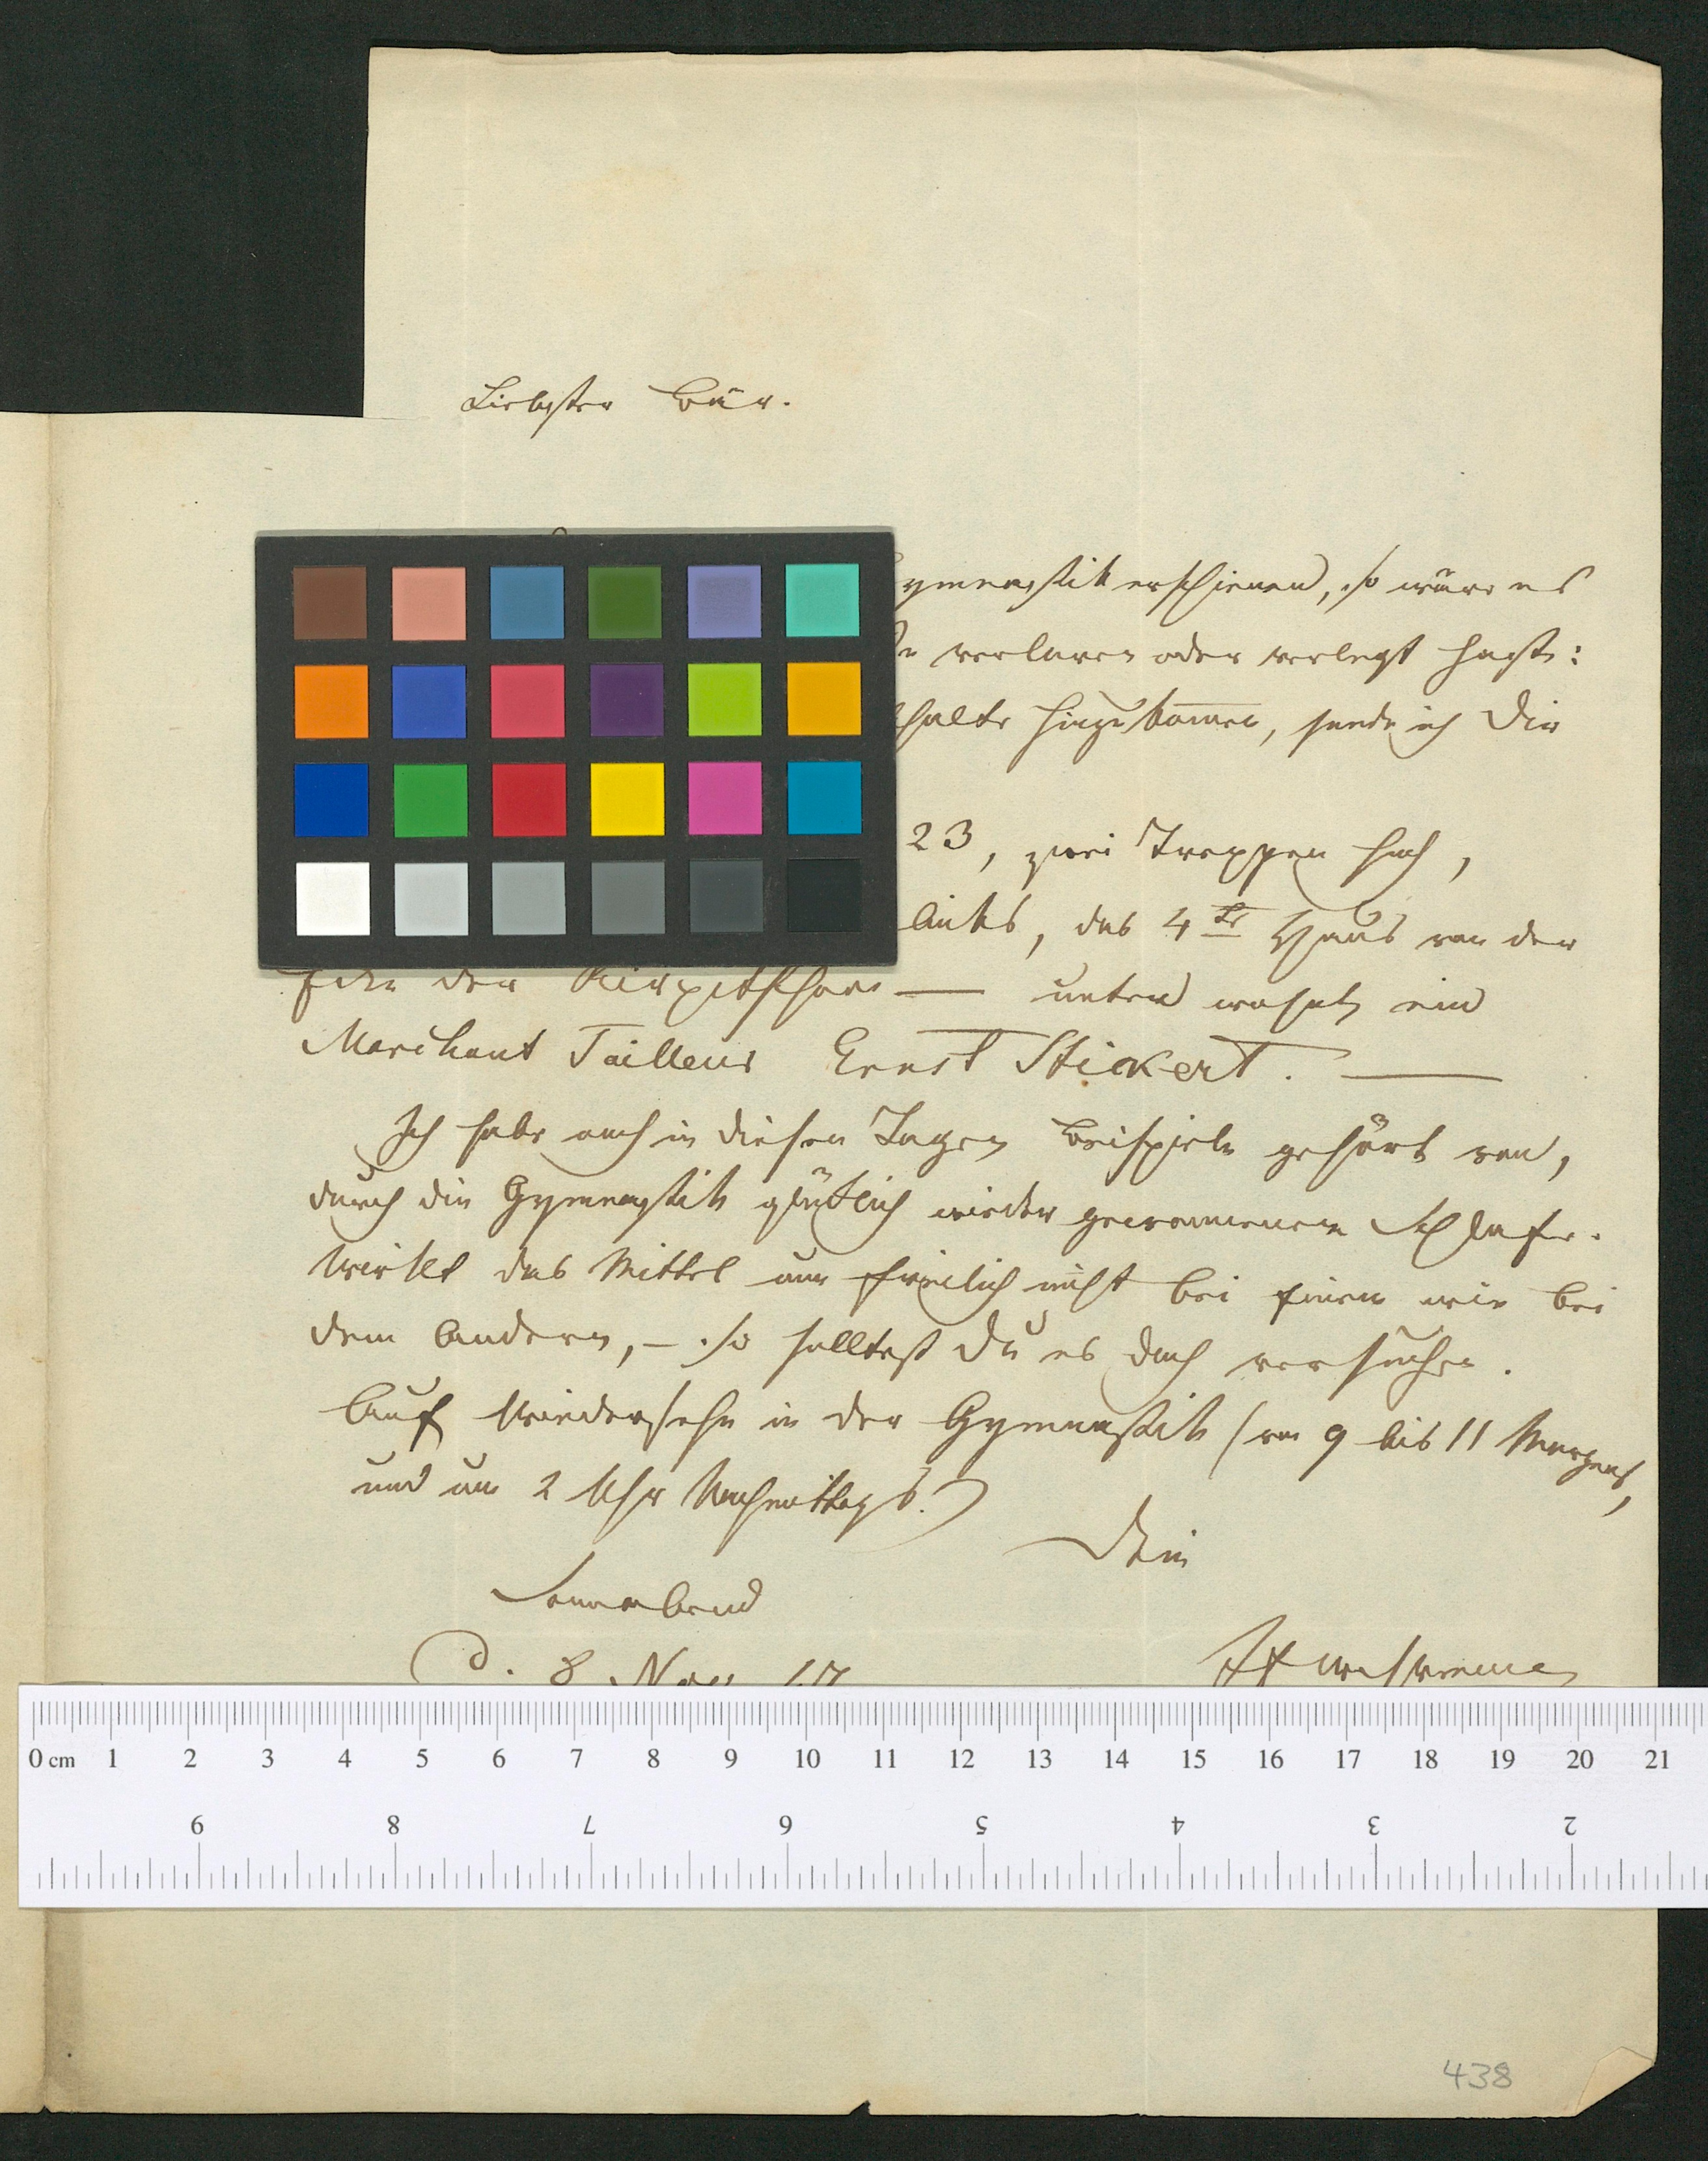 Liebster Bär.
ymnastik erschienen, so wäre es
verloren oder verlegt hast:
halte hinzukommen, sende ich Dir
23, zwei Treppen hoch,
links, das 4te Haus von der
Ecke der Kirpitschnoi — unten wohnt ein
Marchant Tailleur Ernst Stickert. —
Ich habe auch in diesen Tagen Beispiele gehört von,
durch die Gymnastik glücklich wieder gewonnenem Schlafe.
Wirkt das Mittel nun freilich nicht bei Einem wie bei
dem Andern, – so solltest Du es doch versuchen.
Auf Wiedersehn in der Gymnastik (von 9 bis 11 Morgens,
und um 2 Uhr Nachmittags.)
Dein
Sonnabend
d. 8 Nov.
0 cm 1 2 3 4 5 6 7 8 9 10 11 12 13 14 15 16 17 18 19 20 21
9 8 7 6 5 4 3 2
438